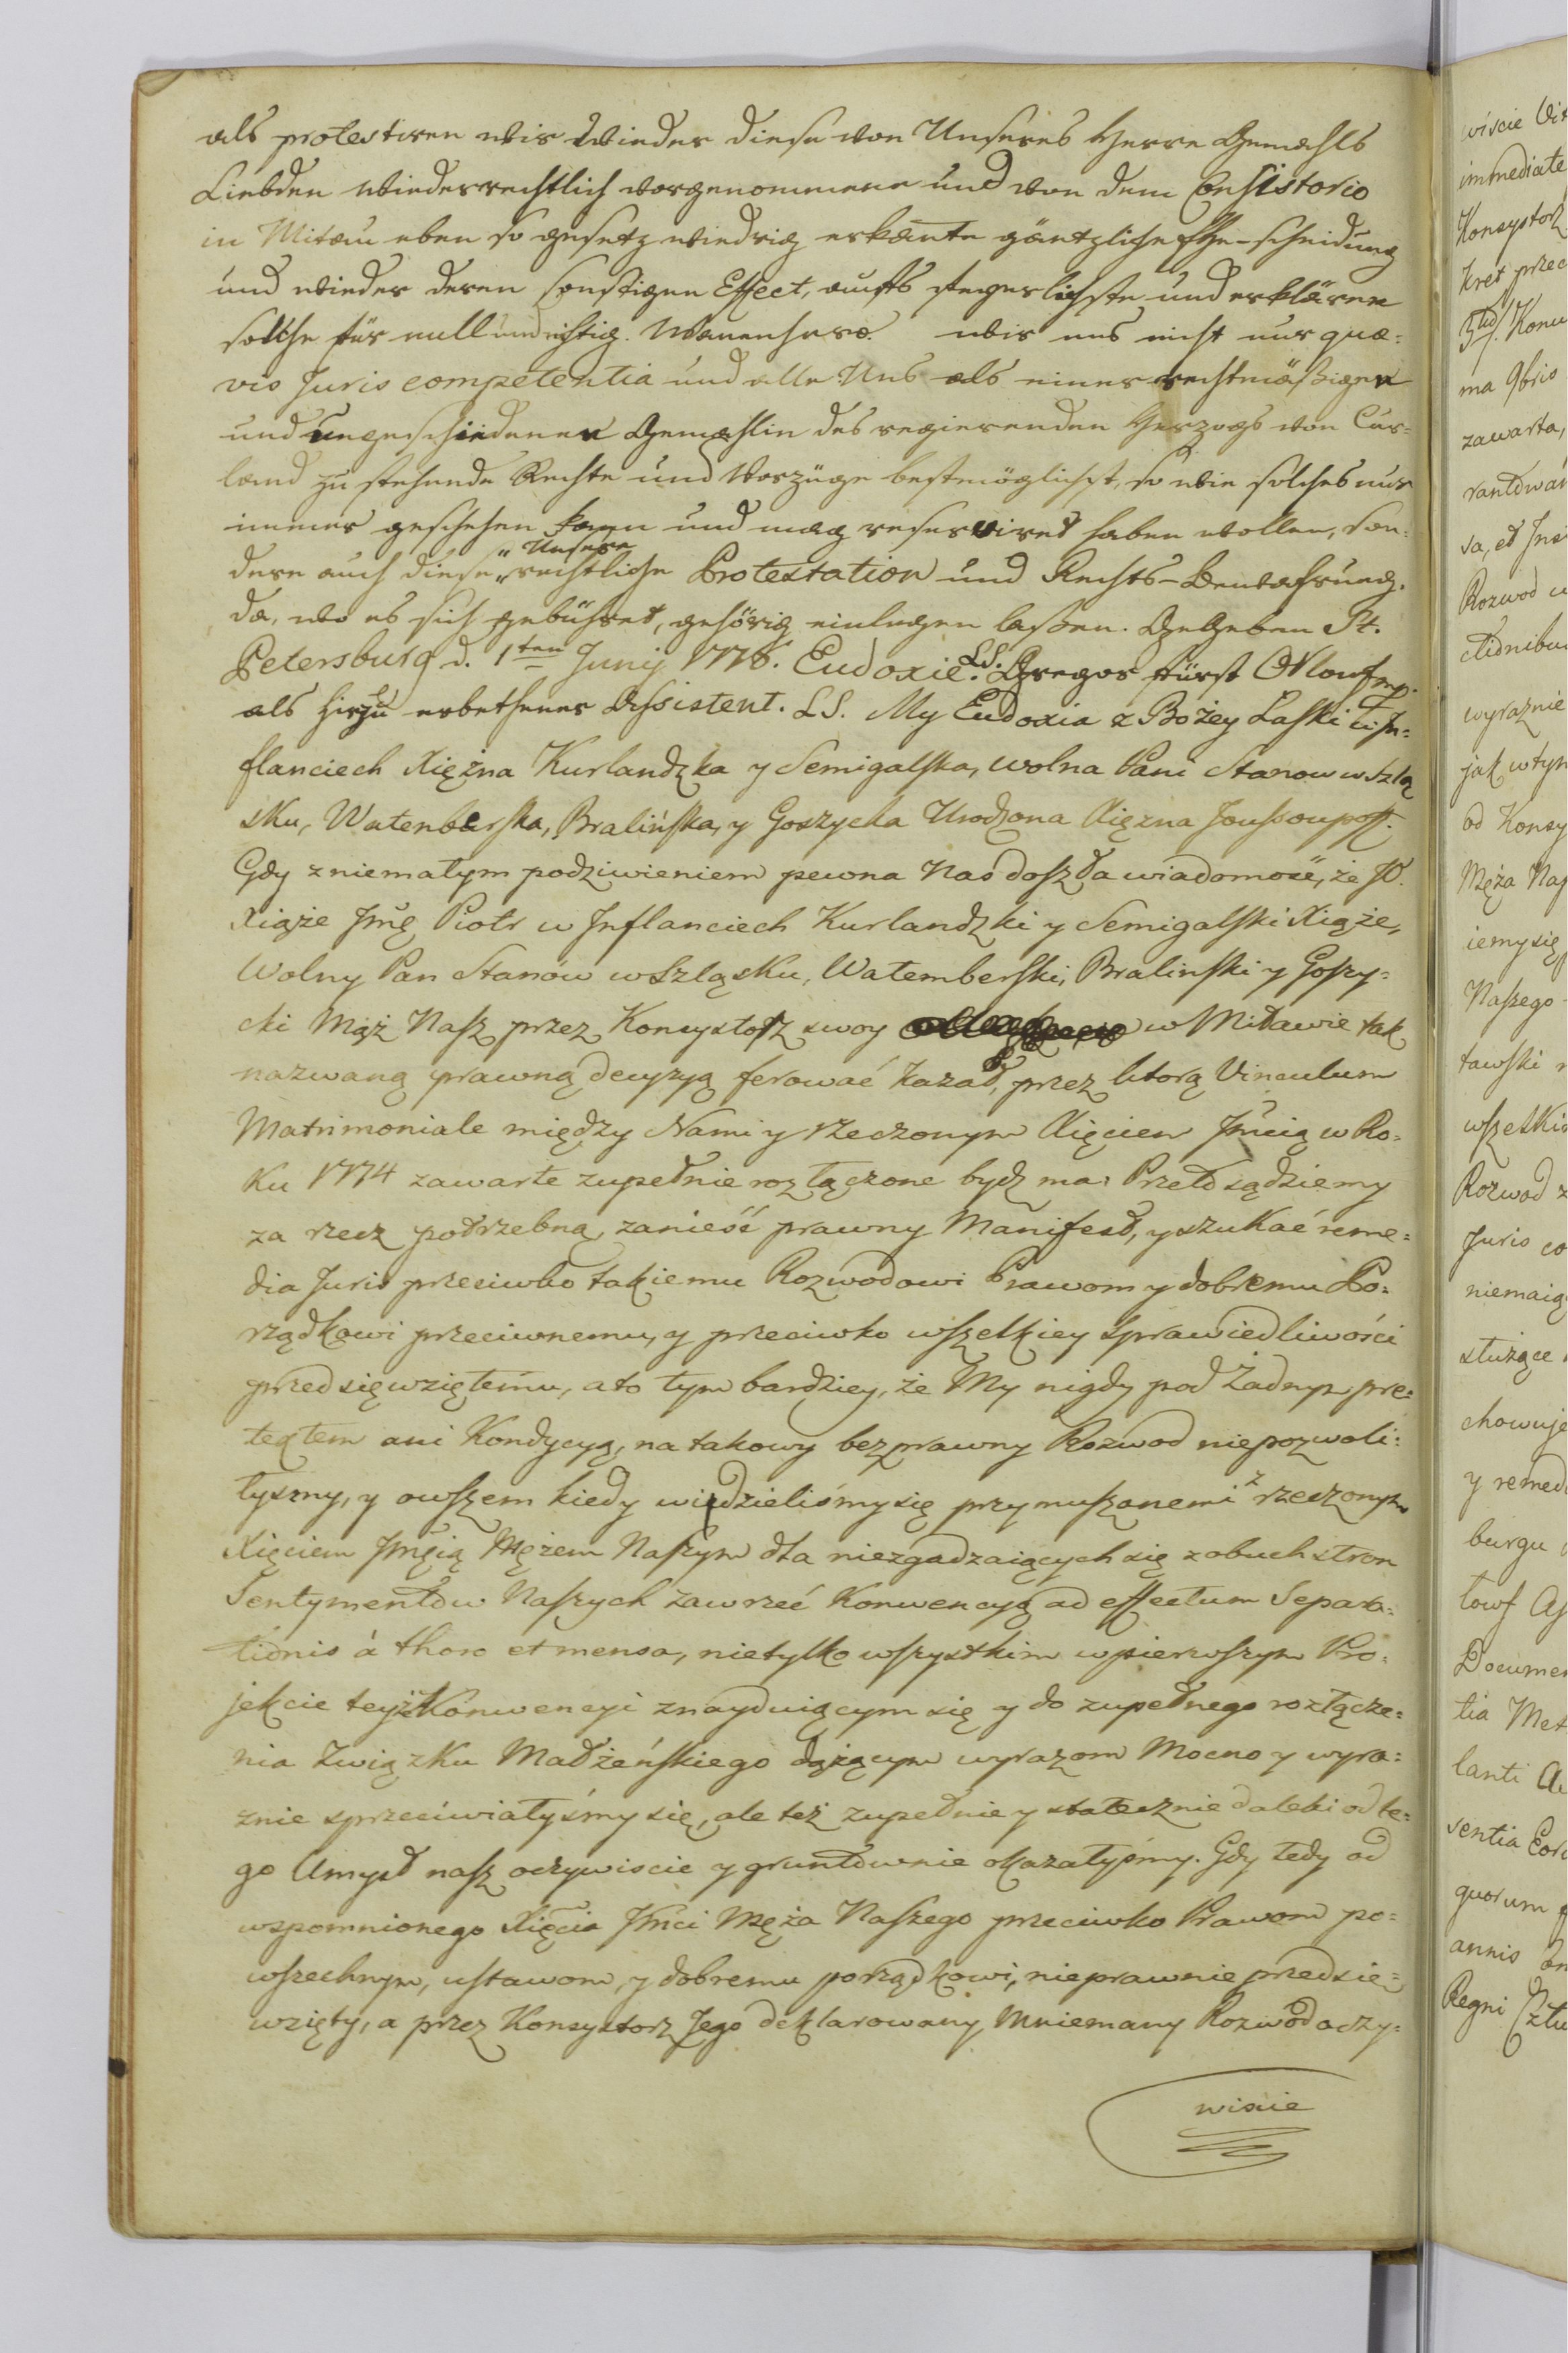 als protestiren wir wieder diese von Unseres Herrn Gemahls
Liebden wiederrechtlich vorgenommene und von dem Consistorio
in Mitau eben so gesetz wiedrig erkante gäntzliche Ehe-scheidung
und wieder deren sonstigen Effect, aufs feyerlichste und erklären
solche für null und nichtig. wir uns nicht nur quæ-
vis Juris competentia und alle Uns als einer rechtmäßigen
und ungeschiedenen Gemahlin des regierenden Herzogs von Cur-
land zu stehende Rechte und Vorzüge bestmöglichst, so wie solches nur
immer geschehen kann und mag reserviret haben wollen, son-
dern auch diese Unsere rechtliche Protestation und Rechts-Bewahrung,
da, wo es sich gebühret, gehörig einlegen laßen. Gegeben St.
Petersburg d. 1ten Junij 1778. Eudoxie. LS. Gregor Fürst Orlow
als hierzu erbethener Assistent. LS. My Eudoxia z Bożey Łaski w In-
flanciech Xiężna Kurlandzka y Semigalska, wolna Pani Stanow w Szlą
sku, Watenberska, Bralińska, y Goszycka Urodzona Xiężna Joussoupoff.
Gdy z niemałym podziwieniem pewna Nas doszła wiadomość, że JO.
Xiąże Jmć Piotr w Inflanciech Kurlandzki y Semigalski Xiąże,
Wolny Pan Stanów w Szląsku, Watemberski, Bralinski y Goszy-
cki Mąż Nasz przez Konsystorz swoy w Mitawie tak
nazwaną prawną decyzyą ferować kazał, przez ktorą Vinculum
Matrimoniale między Nami y rzeczonym Xięciem Jmcią w Ro-
ku 1774 zawarte zupełnie rozłączone bydz ma; Przeto sądziemy
za rzecz potrzebną, zanieść prawny Manifest, y szukać reme-
dia Juris przeciwko takiemu Rozwodowi Prawom y dobremu Po-
rządkowi przeciwnemu, y przeciwko wszelkiey sprawiedliwości
przedsięwziętemu, a to tym bardziey, że My nigdy pod żadnym pre-
textem ani Kondycyą, na takowy bezprawny Rozwod niepozwoli-
łyszmy, y owszem kiedy widzieliśmy się przymuszonemi z rzeczonym
Xięciem Jmścią Mężem Naszym dla niezgadzaiących się z obuch stron
Sentymentow Naszych zawrzeć Konwencyą ad effectum Separa-
tionis à thoro et mensa, nietylko wszystkim w pierwszym Pro-
jekcie teyże Konwencyi znayduiącym się y do zupełnego rozłącze-
nia Związku Małżeńskiego dążącym wyrazom Mocno y wyra-
znie sprzeciwiałyśmy się, ale też zupełnie y statecznie daleki od te-
go Umysł nasz oczywiscie y gruntownie okazałyśmy. Gdy tedy od
wspomnionego Xięcia Jmci Męża Naszego przeciwko Prawom po-
wszechnym, ustawom, y dobremu porządkowi, nieprawnie przedsię-
wzięty, a przez Konsystorz Jego deklarowany, Mniemany Rozwod oczy-
wiscie